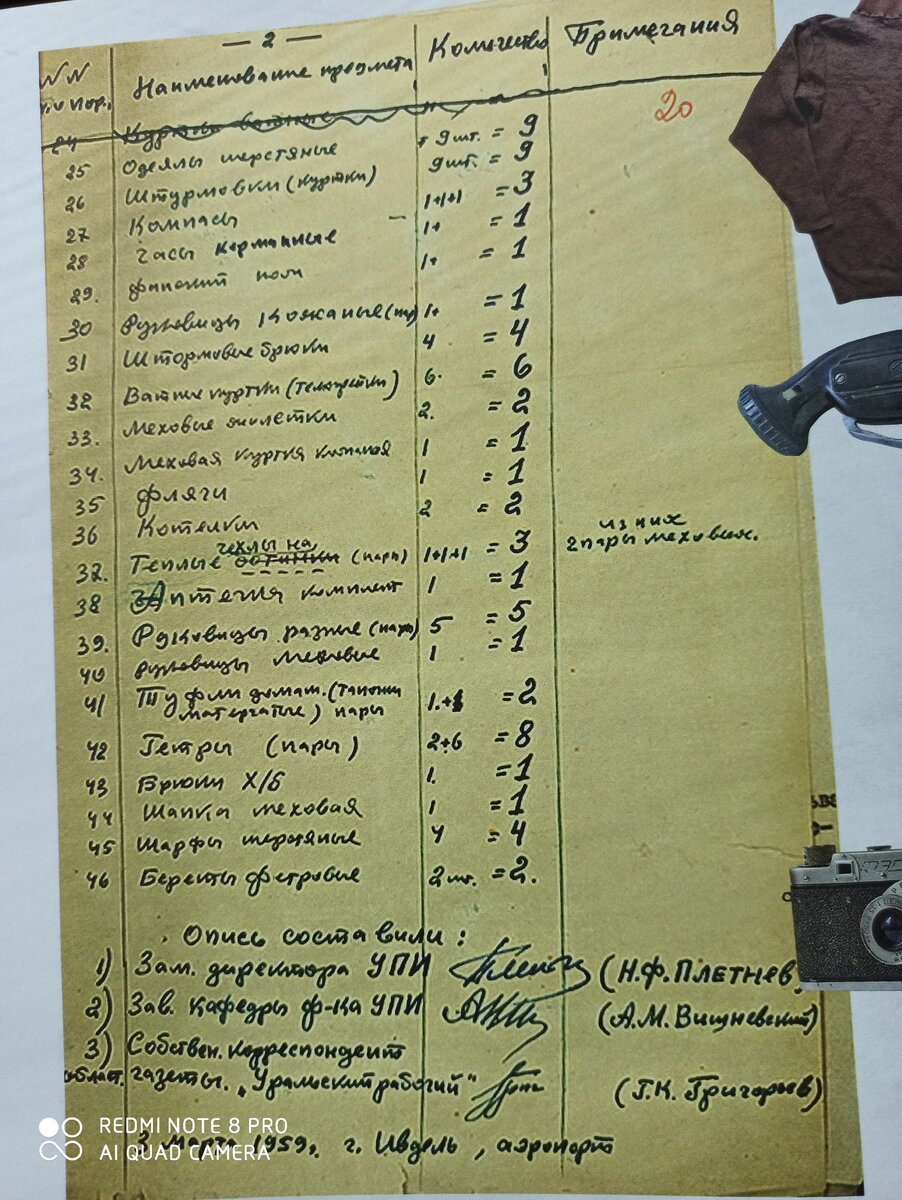 — 2 —
NN
п/пор.
Наименование предмета
Количество
Примечания
24 Куртки ватные
20
25 Одеялы шерстяные + 9 шт. = 9
26 Штурмовки (куртки) 9 шт. = 9
27 Компасы 1+1+1 = 3
28 Часы карманные — 1+ = 1
29. финский нож 1+ = 1
30 Рукавицы кожаные (пар) 1+ = 1
31 Штормовые брюки 4 = 4
32 Ватные куртки (телогрейки) 6. = 6
33. Меховые жилетки 2. = 2
34. Меховая куртка 1 = 1
35 фляги 1 = 1
36 Котелки 2 = 2
чехлы на из них
37. Теплые ботинки (пары) 1+1+1 = 3 2 пары меховых.
38 Аптечка комплект 1 = 1
39. Рукавицы разные (пары) 5 = 5
40 рукавицы меховые 1 = 1
41 Туфли домаш. (тапочки 1.+1 = 2
матерчатые) пары
42 Гетры (пары) 2+6 = 8
43 Брюки Х/Б 1. = 1
44 Шапка меховая 1 = 1
45 Шарфы шерстяные 4 = 4
46 Береты фетровые 2 шт. = 2.
Опись составили:
1) Зам. директора УПИ (Н.Ф. Плетнев)
2) Зав. кафедры ф-ка УПИ (А.М. Вишневский)
3) Собствен. корреспондент
област. газеты. „Уральский рабочий" (Г.К. Григорьев)
3 марта 1959г. г. Ивдель, аэропорт
REDMI NOTE 8 PRO
AI QUAD CAMERA